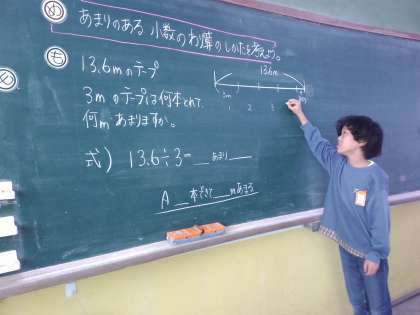 め あまりのある小数のわり算のしかたを考えよう。
も 13.6mのテープ
3mのテープは何本とれて、
何mあまりますか。
13.6m
3m
1 2 3
式) 13.6÷3=__あまり__
A __本できて__mあまる